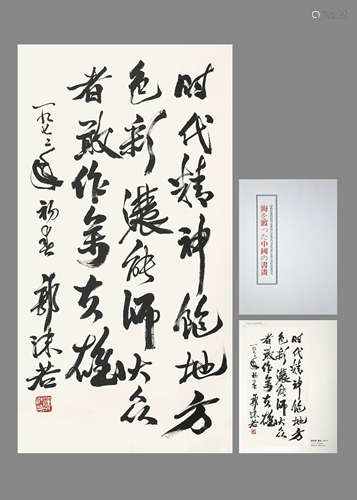 时代精神饱地方
色彩濃能师大众
者敢作萬夫雄
一九七三年初春 郭沫若
海を渡った中國の書畫
时代精神饱地方
色彩濃能师大众
者敢作萬夫雄
一九七三年初春 郭沫若